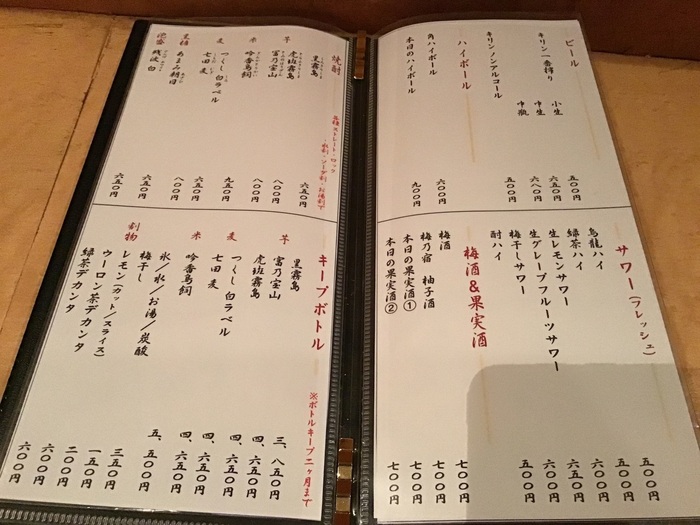 ビール
キリン一番搾り 小生 五〇〇円
中生 六五〇円
中瓶 六八〇円
キリンノンアルコール 五〇〇円
ハイボール
角ハイボール 六〇〇円
本日のハイボール 九〇〇円
サワー(フレッシュ)
烏龍ハイ 五〇〇円
緑茶ハイ 五〇〇円
生レモンサワー 六〇〇円
生グレープフルーツサワー 六五〇円
梅干しサワー 五〇〇円
酎ハイ 五〇〇円
梅酒&果実酒
梅酒 七〇〇円
梅乃宿 柚子酒 七〇〇円
本日の果実酒① 七〇〇円
本日の果実酒② 七〇〇円
焼酎
各種ストレート・ロック
・水割・ソーダ割・お湯割で
芋 黒霧島 六五〇円
虎斑霧島 七〇〇円
富乃宝山 八〇〇円
米 吟香鳥飼 九五〇円
麦 つくし白ラベル 六五〇円
七田 麦 八〇〇円
黒糖 あまみ朝日 六五〇円
泡盛 残波 白 六五〇円
キープボトル
※ボトルキープ二ヶ月まで
芋 黒霧島 三、八五〇円
富乃宝山 四、六五〇円
虎斑霧島 四、六五〇円
麦 つくし白ラベル 四、六五〇円
七田 麦 四、六五〇円
米 吟香鳥飼 五、五〇〇円
割物 氷/水/お湯/炭酸 三五〇円
梅干し 一五〇円
レモン(カット/スライス) 二〇〇円
ウーロン茶デカンタ 六〇〇円
緑茶デカンタ 六〇〇円